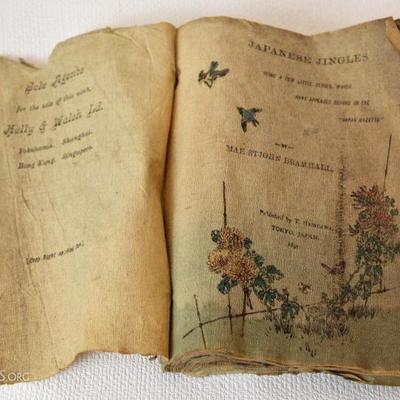 Sole Agents
For the sale of this work,
Kelly & Walsh Ld.
Yokohama. Shanghai.
Hong Kong. Singapore.
JAPANESE JINGLES
BEING A FEW LITTLE VERSES, WHICH
HAVE APPEARED BEFORE IN THE
"JAPAN GAZETTE"
—BY—
MAE ST.JOHN BRAMHALL.
Published by T. HASEGAWA,
TOKYO, JAPAN.
1891
S.ORG